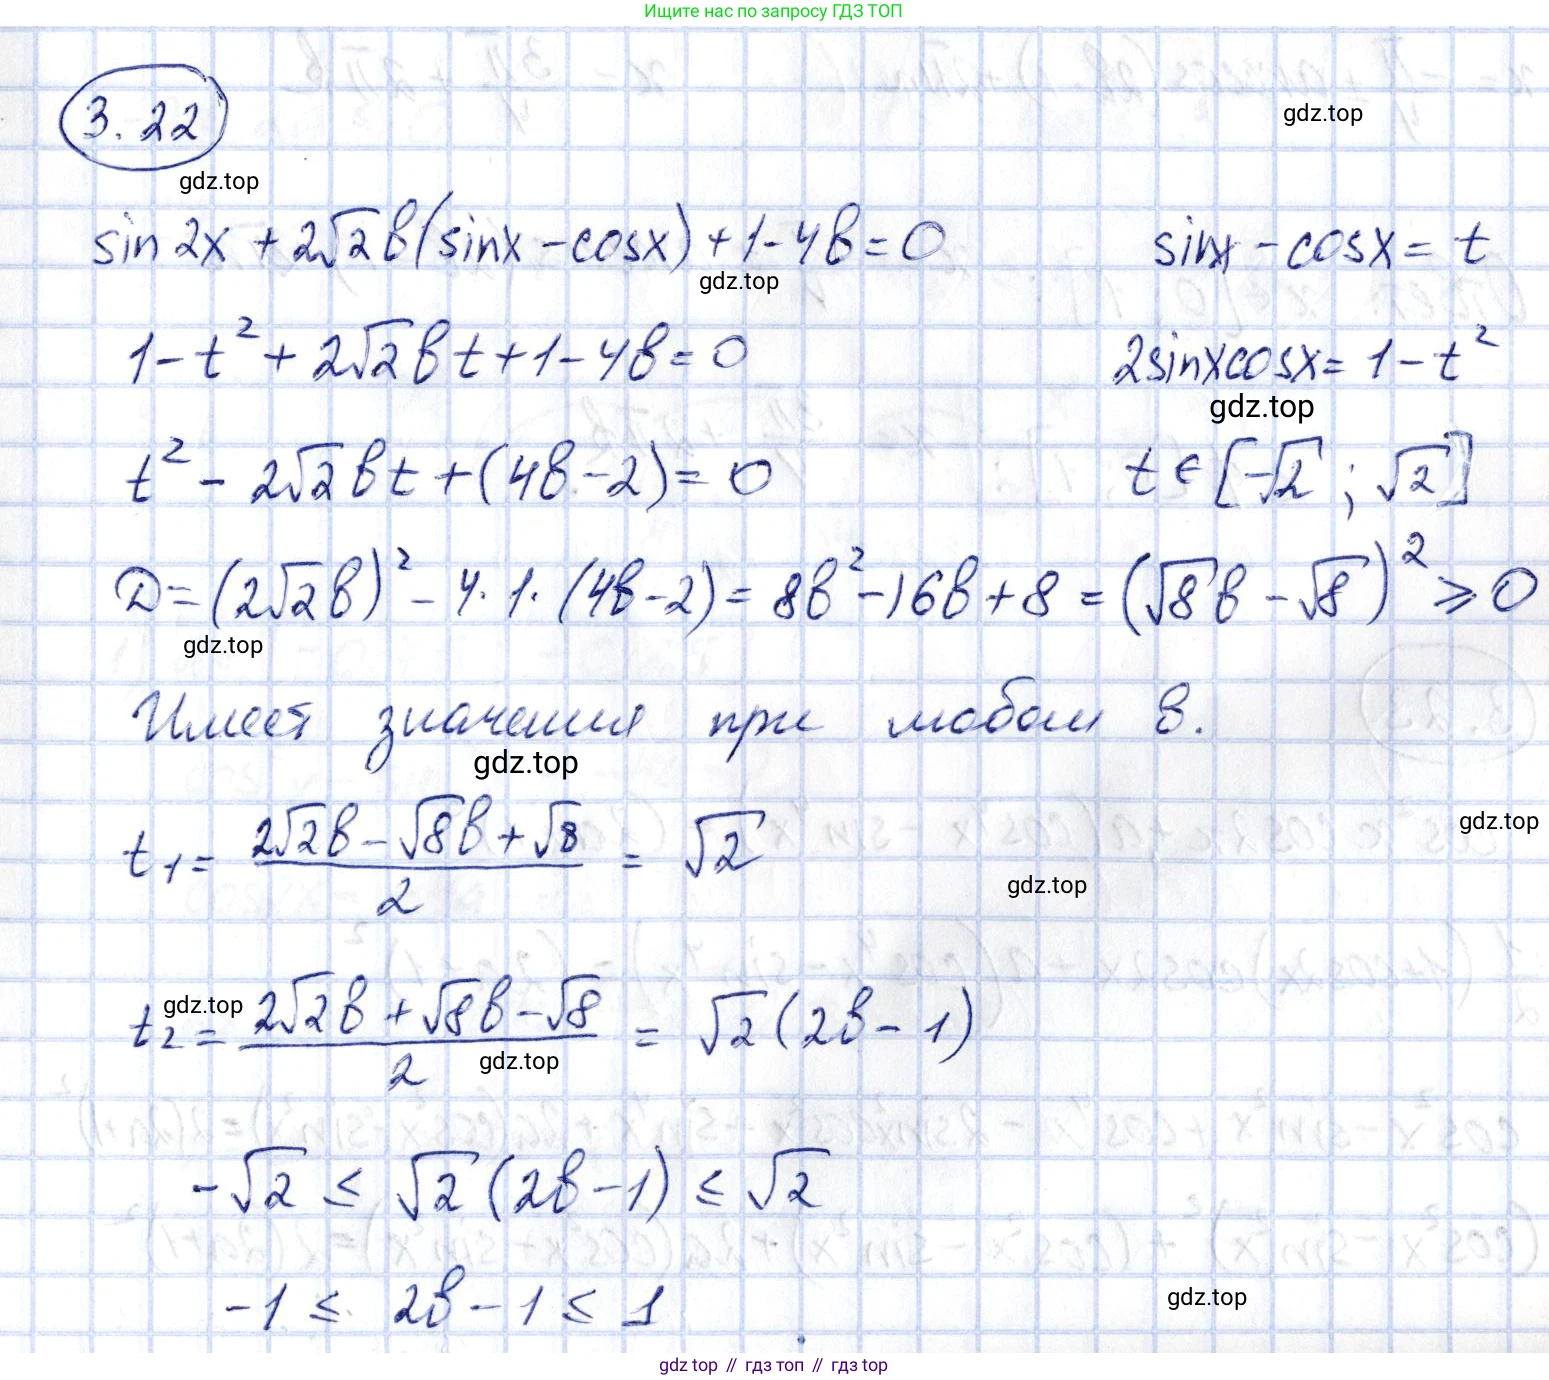 Ищите нас по запросу ГДЗ ТОП
gdz.top
3.22
gdz.top
sin2x + 2√2 b(sinx - cosx) + 1 - 4b = 0
sinx - cosx = t
gdz.top
1 - t² + 2√2 bt + 1 - 4b = 0
2sinxcosx = 1 - t²
gdz.top
t² - 2√2 bt + (4b - 2) = 0
t ∈ [-√2 ; √2]
D = (2√2 b)² - 4·1·(4b - 2) = 8b² - 16b + 8 = (√8 b - √8)² ⩾ 0
gdz.top
Имеет значения при любом b.
gdz.top
gdz.top
t₁ = (2√2 b - √8 b + √8)/2 = √2
gdz.top
gdz.top
t₂ = (2√2 b + √8 b - √8)/2 = √2 (2b - 1)
gdz.top
-√2 ≤ √2 (2b - 1) ≤ √2
-1 ≤ 2b - 1 ≤ 1
gdz.top
gdz top // гдз топ // гдз top